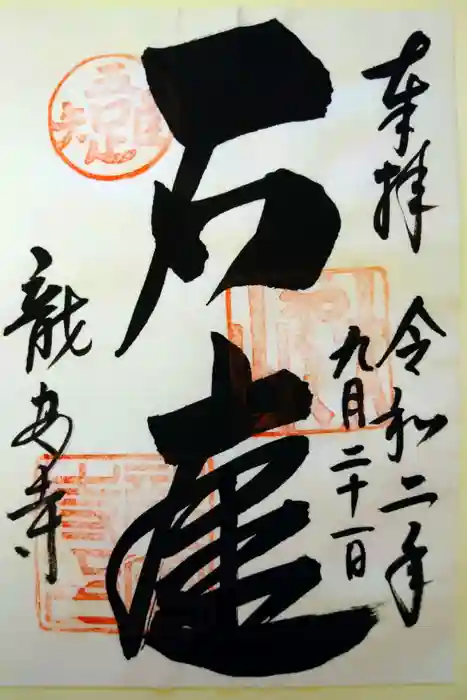 奉拝
令和二年
九月二十一日
石庭
龍安寺
吾唯足知